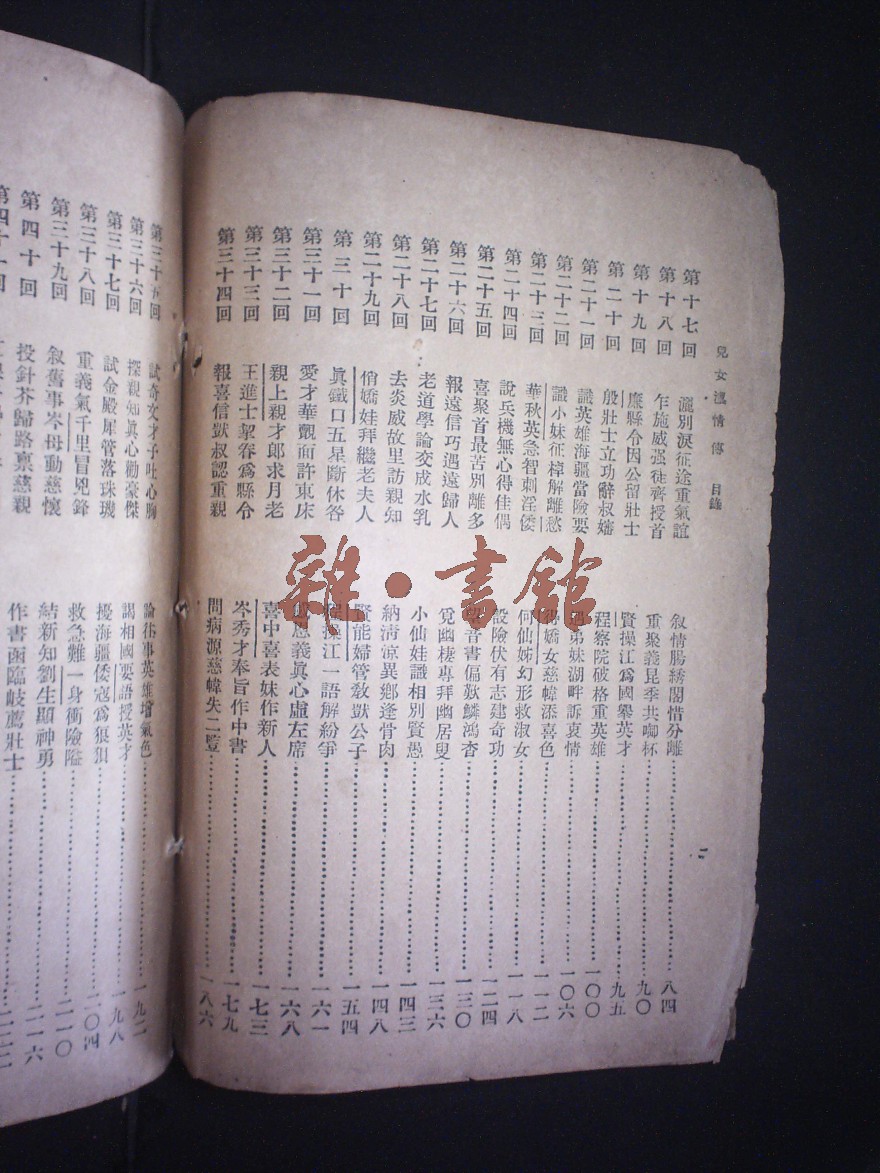 兒女濃情傳 目錄
二
第十七回 灑別淚征途重氣誼 叙情腸綉閣惜分離 八四
第十八回 乍施威强徒齊授首 重聚義昆季共啣杯 九〇
第十九回 廉縣令因公留壯士 賢操江爲國舉英才 九五
第二十回 殷壯士立功辭叔嬸 程察院破格重英雄 一〇〇
第二十一回 識英雄海疆當險要 弟妹湖畔訴衷情 一〇六
第二十二回 識小妹征樟解離愁 嬌女慈幃添喜色 一一二
第二十三回 華秋英急智刺淫倭 何仙姊幻形救淑女 一一八
第二十四回 說兵機無心得佳偶 設險伏有志建奇功 一二四
第二十五回 喜聚首最苦別離多 音書偏歎鱗鴻杳 一三〇
第二十六回 報遠信巧遇遠歸人 覓幽棲專拜幽居叟 一三六
第二十七回 老道學論交成水乳 小仙娃識相別賢愚 一四三
第二十八回 去炎威故里訪親知 納清凉異鄉逢骨肉 一四八
第二十九回 俏嬌娃拜繼老夫人 賢能婦管教獃公子 一五四
第三十回 眞鐵口五星斷休咎 操江一語解紛爭 一六一
第三十一回 愛才華覿面許東床 應義眞心虛左席 一六八
第三十二回 親上親才郎求月老 喜中喜表妹作新人 一七三
第三十三回 王進士挈眷爲縣令 岑秀才奉旨作中書 一七九
第三十四回 報喜信獃叔認重親 問病源慈幃失二豎 一八六
第三十五回 試奇文才子吐心胸 論往事英雄增氣色 一九二
第三十六回 探親知眞心勸豪傑 謁相國要語授英才 一九八
第三十七回 試金殿犀管落珠璣 擾海疆倭寇爲狼狽 二〇四
第三十八回 重義氣千里冒兇鋒 救急難一身衝險隘 二一〇
第三十九回 叙舊事岑母動慈懷 結新知劉生顯神勇 二一六
第四十回 投針芥歸路稟慈親 作書函臨岐薦壯士
第四十一回
雜·書館